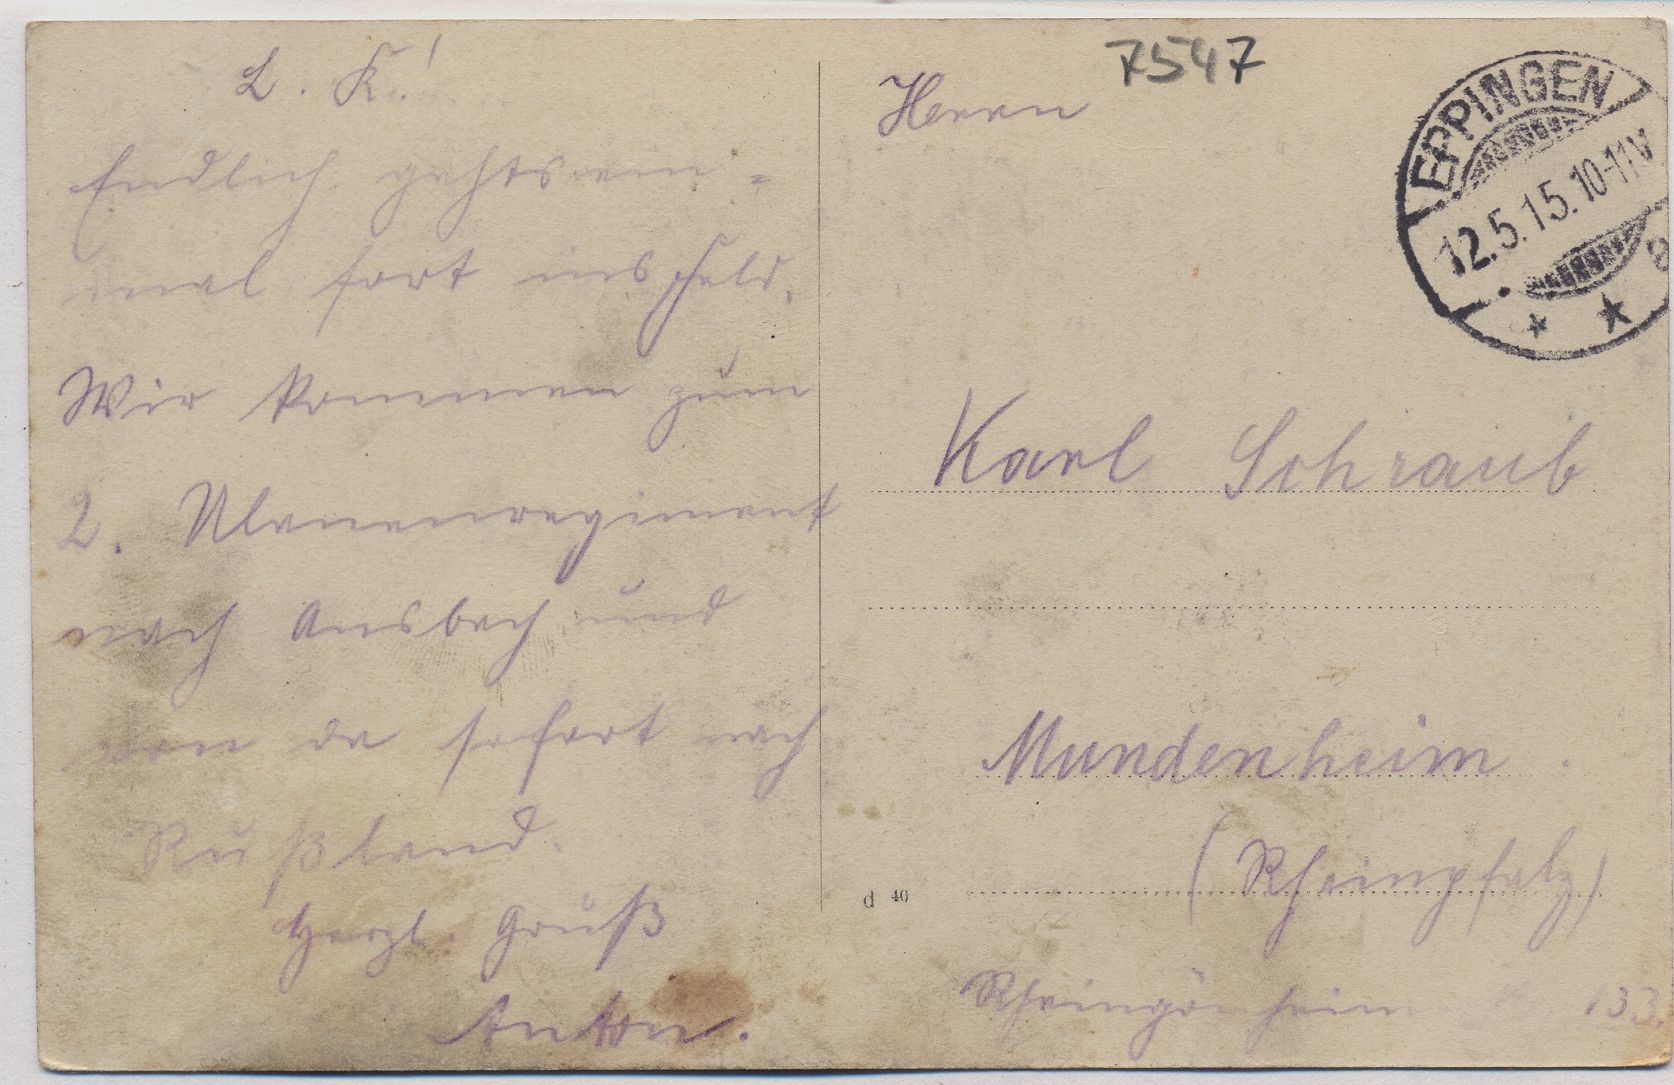 L. K.!
Endlich gehts ein-
mal fort ins Feld.
Wir kommen zum
2. Ulanenregiment
nach Ansbach und
von da sofort nach
Rußland.
Herzl. Gruß
Anton.
7547
Herrn
EPPINGEN
12.5.15.10-11V
Karl Schraub
Mundenheim.
(Rheinpfalz)
d 40
Rheingönheim 133.